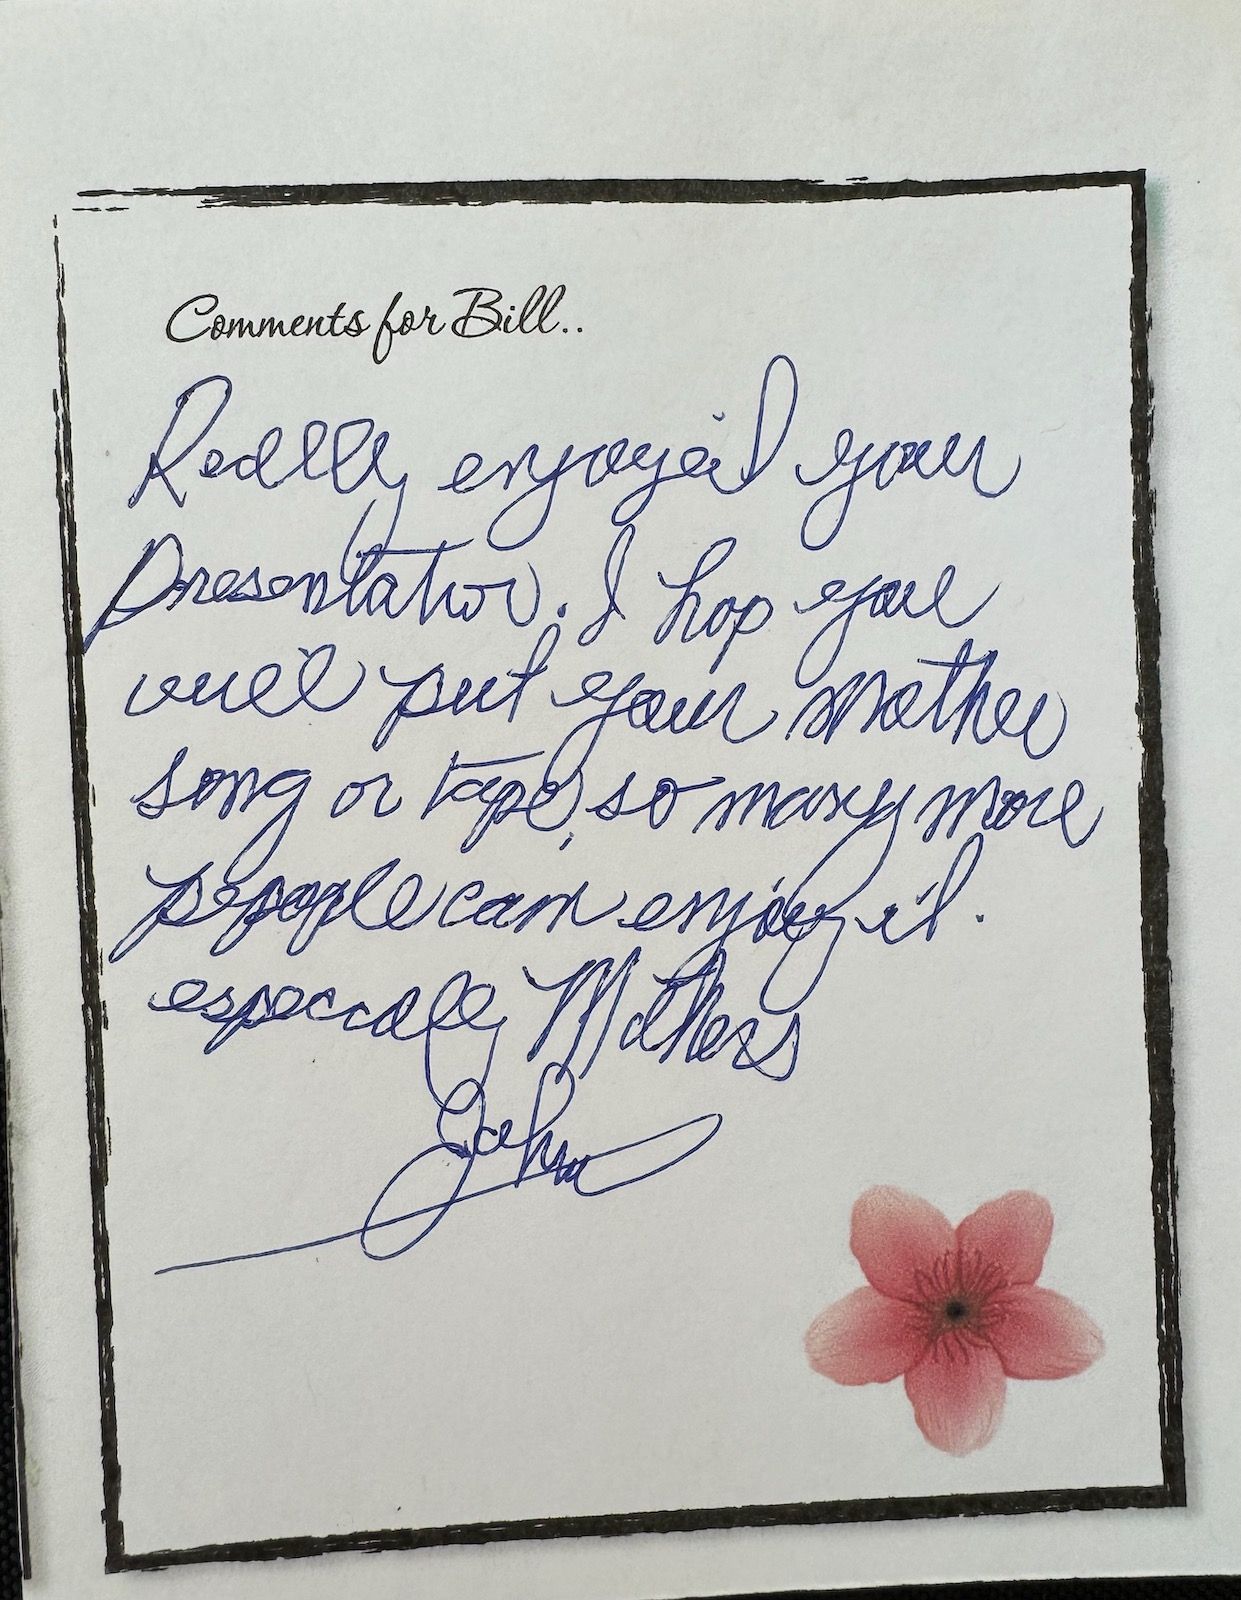 Comments for Bill..
Really enjoyed your
presentation. I hop you
will put your mother
song or tape, so many more
people can enjoy it.
especially Mothers
John